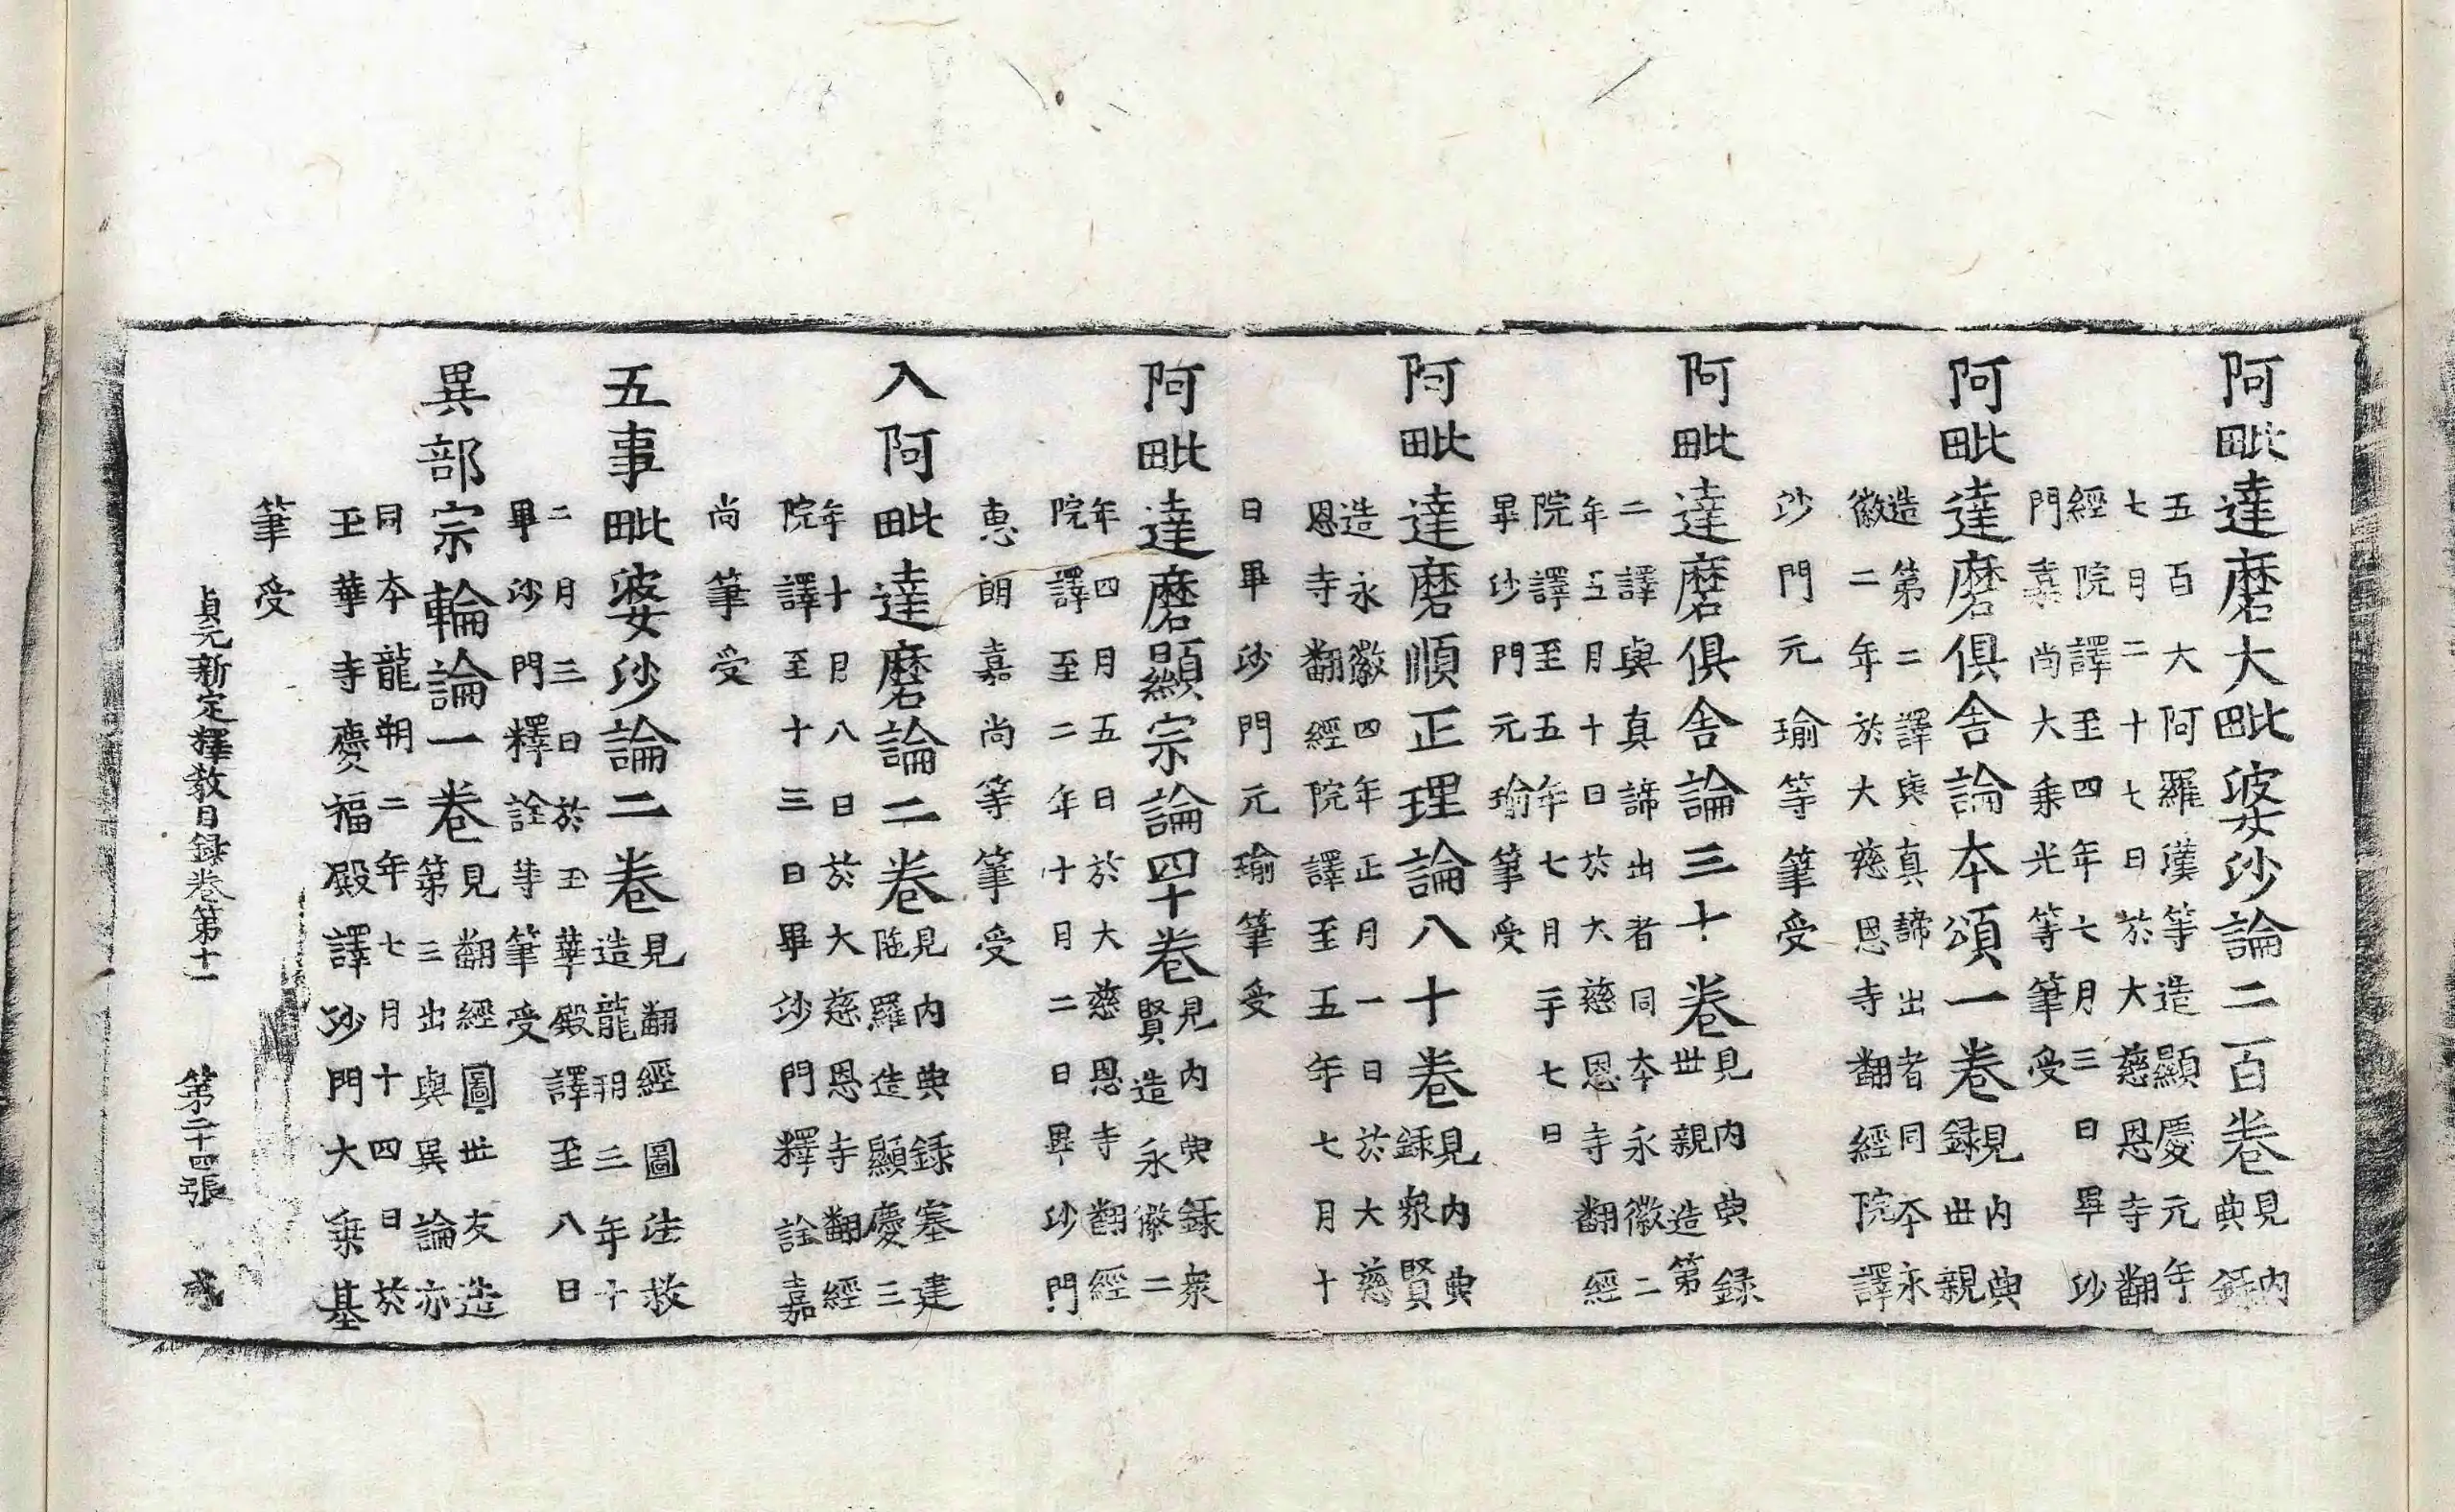 阿毗達磨大毗婆沙論二百卷見内典録
五百大阿羅漢等造顯慶元年
七月二十七日於大慈恩寺翻
經院譯至四年七月三日畢沙
門嘉尚大乘光等筆受
阿毗達磨俱舍論本頌一卷見内典録世親
造第二譯與真諦出者同本永
徽二年於大慈恩寺翻經院譯
沙門元瑜等筆受
阿毗達磨俱舍論三十卷見内典録世親造第
二譯與真諦出者同本永徽二
年五月十日於大慈恩寺翻經
院譯至五年七月手七日
畢沙門元瑜筆受
阿毗達磨順正理論八十卷見内典録衆賢
造永徽四年正月一日於大慈
恩寺翻經院譯至五年七月十
日畢沙門元瑜筆受
阿毗達磨顯宗論四十卷見内典録衆賢造永徽二
年四月五日於大慈恩寺翻經
院譯至二年十月二日畢沙門
惠朗嘉尚等筆受
入阿毗達磨論二卷見内典録塞建陁羅造顯慶三
年十月八日於大慈恩寺翻經
院譯至十三日畢沙門釋詮嘉
尚筆受
五事毗婆沙論二卷見翻經圖法救造龍朔三年十
二月三日於玉華殿譯至八日
畢沙門釋詮等筆受
異部宗輪論一卷見翻經圖世友造第三出與異論亦
同本龍朔二年七月十四日於
玉華寺慶福殿譯沙門大乘基
筆受
貞元新定釋教目録卷第十一 第二十四張